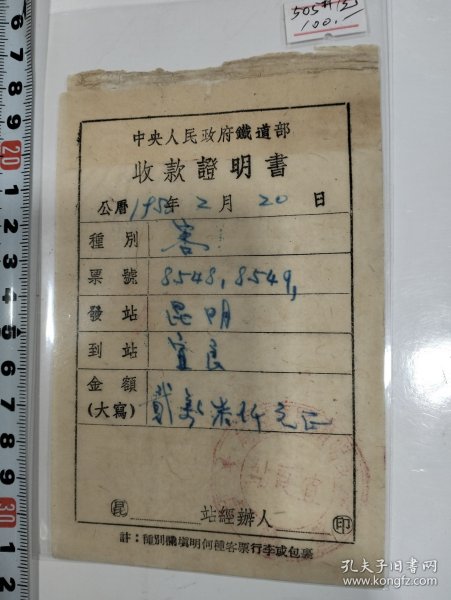 505#
100.—
中央人民政府鐵道部
收款證明書
公曆195 年 2 月 20 日
種別 客
票號 8548, 8549,
發站 昆明
到站 宜良
金額(大寫) 貳萬柒仟元正
昆 站經辦人 印
註：種別欄填明何種客票行李或包裹
20
30
孔夫子旧书网
book.kongfz.com